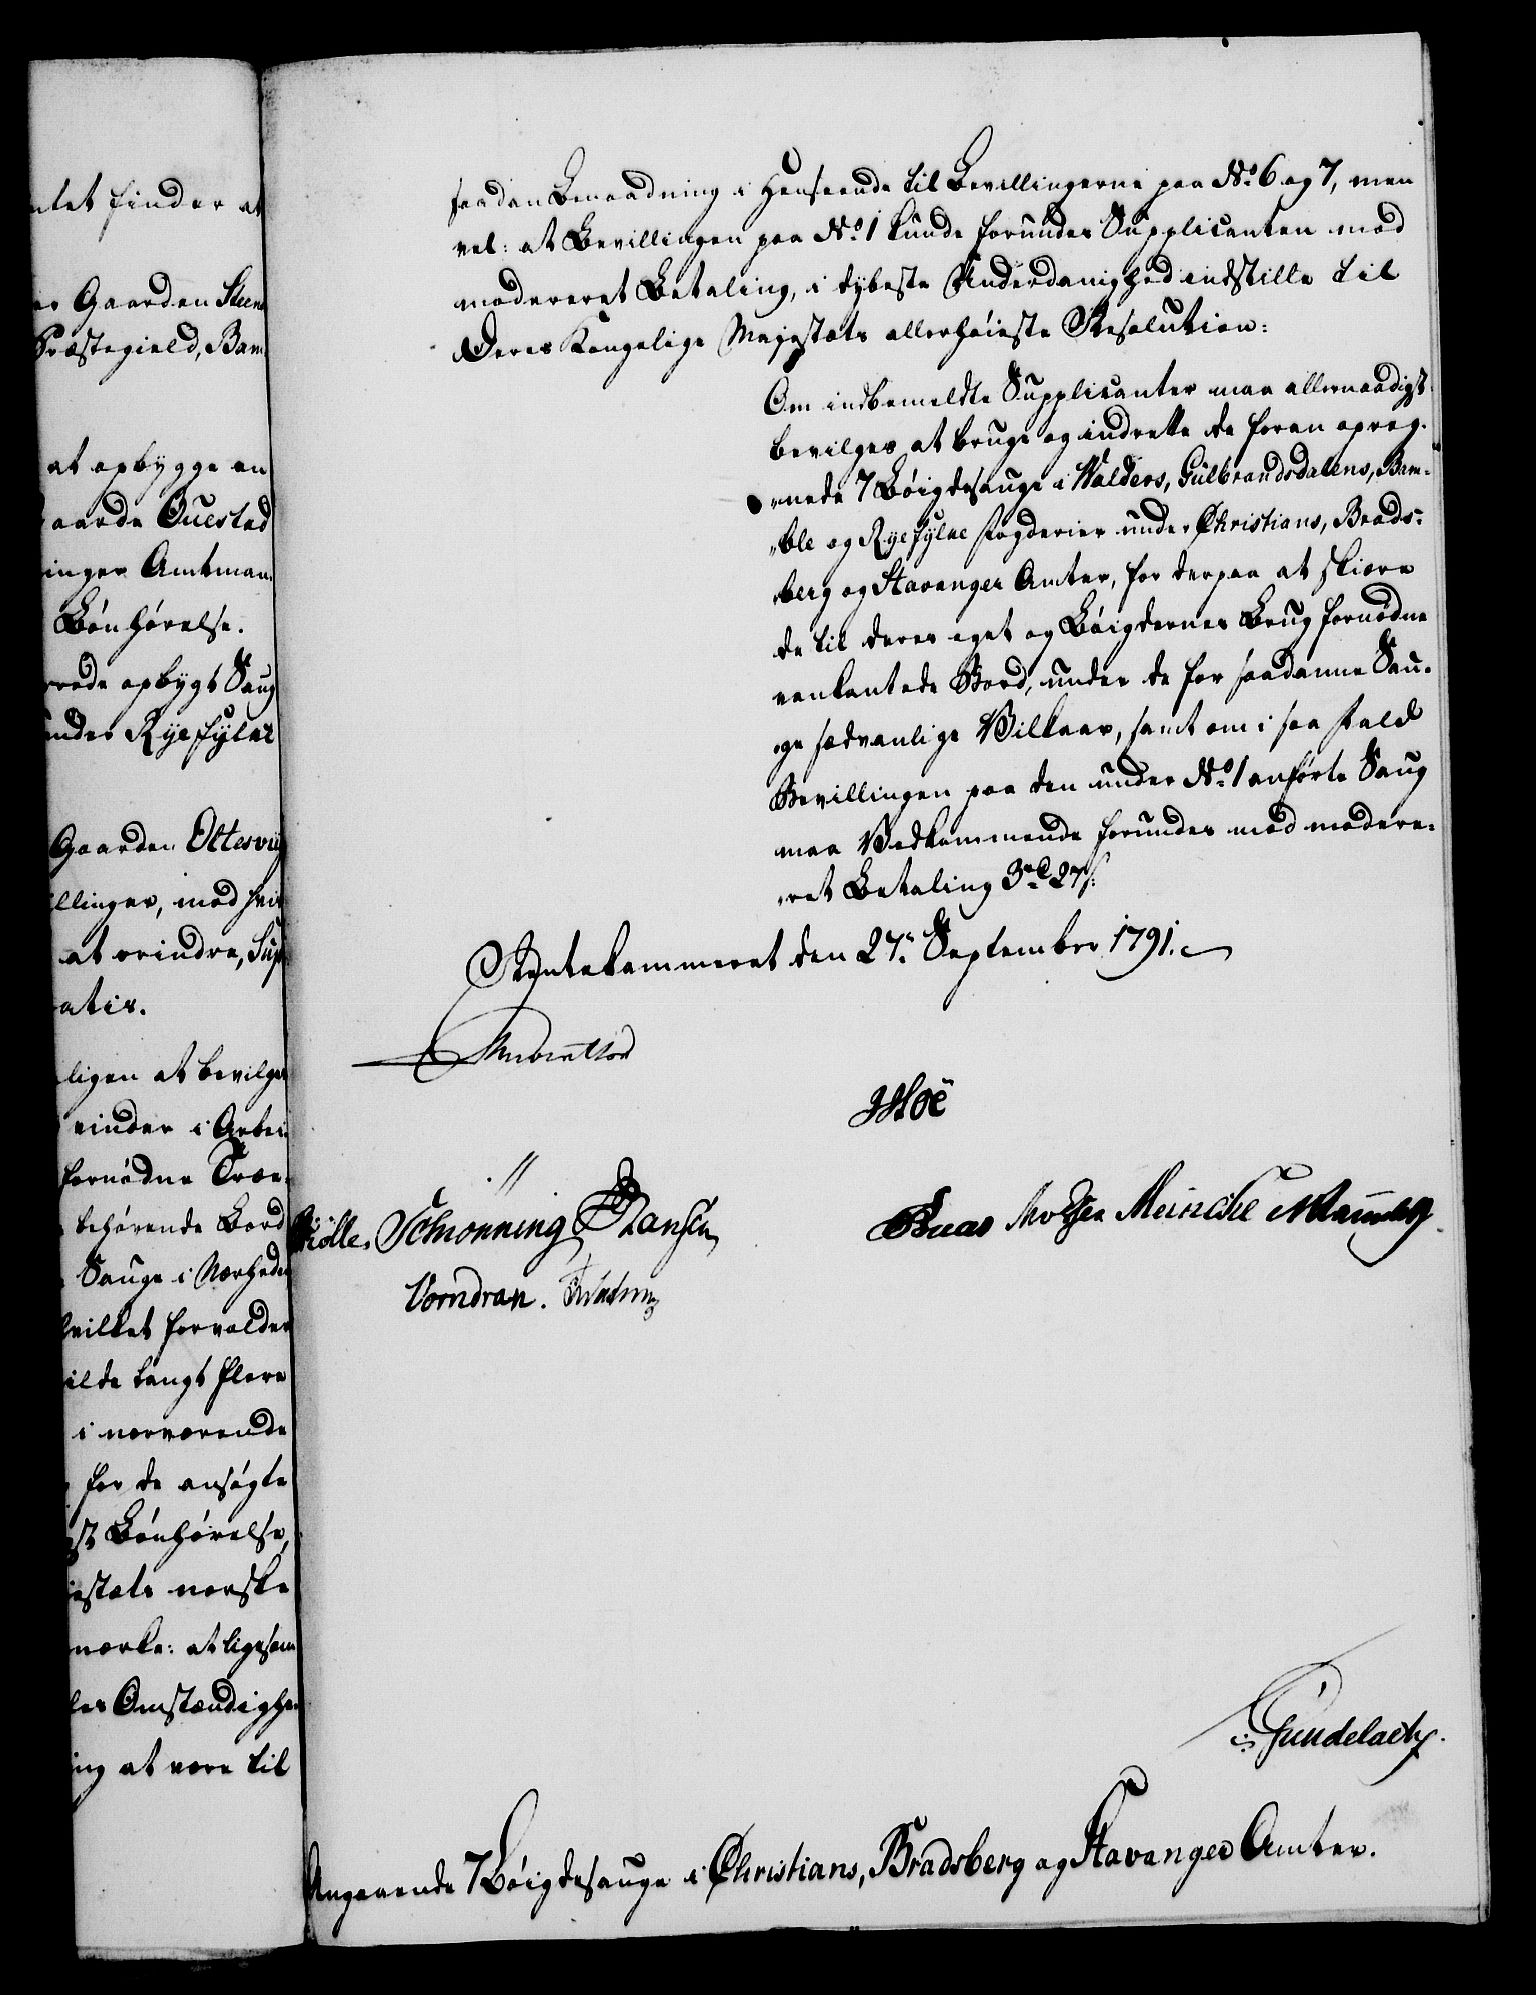 nlet finder at
er Gaarden Steen
Præstegield, Bam-
at opbygge en
aarde Ouestad
inger Amtman-
Bønhørelse.
rede opbygt Saug
under Ryefylke
Gaarden Ottesvig
llinger, mod hvis
at erindre, Sup-
atis.
ligen at bevilges
vinder i Arbei-
fornødne Træe-
behørende Bord
Sauge i Nærheden
hvilket forvolder
ilde langt flere
i nærværende
for de ansøgte
gst Bønhørelse,
jestæts norske
mærke: at ligesom
les Omstændighe-
ing at være til
saadan Benaadning i Henseende til Bevillingerne paa No. 6 og 7, men
vel: at Bevillingen paa No. 1 kunde forundes Supplicanten mod
modereret Betaling, i dybeste Underdanighed indstille til
Deres Kongelige Majestæts allerhøieste Resolution:
Om indbemeldte Supplicanter maa allernaadigst
bevilges at bruge og indrette de foran opreg-
nede 7 Bøigdesauge i Walders, Gulbrandsdalens, Bam-
ble og Ryefylke Fogderier under Christians, Brads-
berg og Stavanger Amter, for derpaa at skiære
de til deres eget og Bøigdernes Brug fornødne
vankantede Bord, under de for saadanne Sau-
ge sædvanlige Vilkaar, samt om i saa Fald
Bevillingen paa den under No. 1 anførte Saug
maa Vedkommende forundes mod modere-
ret Betaling 3 rd 27 s:
Rentekammeret den 27. September 1791.
Hoë
Schrønning Hansen
Buas Moltzen Meincke
Vorndran.
Gundelach.
Angaaende 7 Bøigdesauge i Christians, Bradsberg og Stavanger Amter.